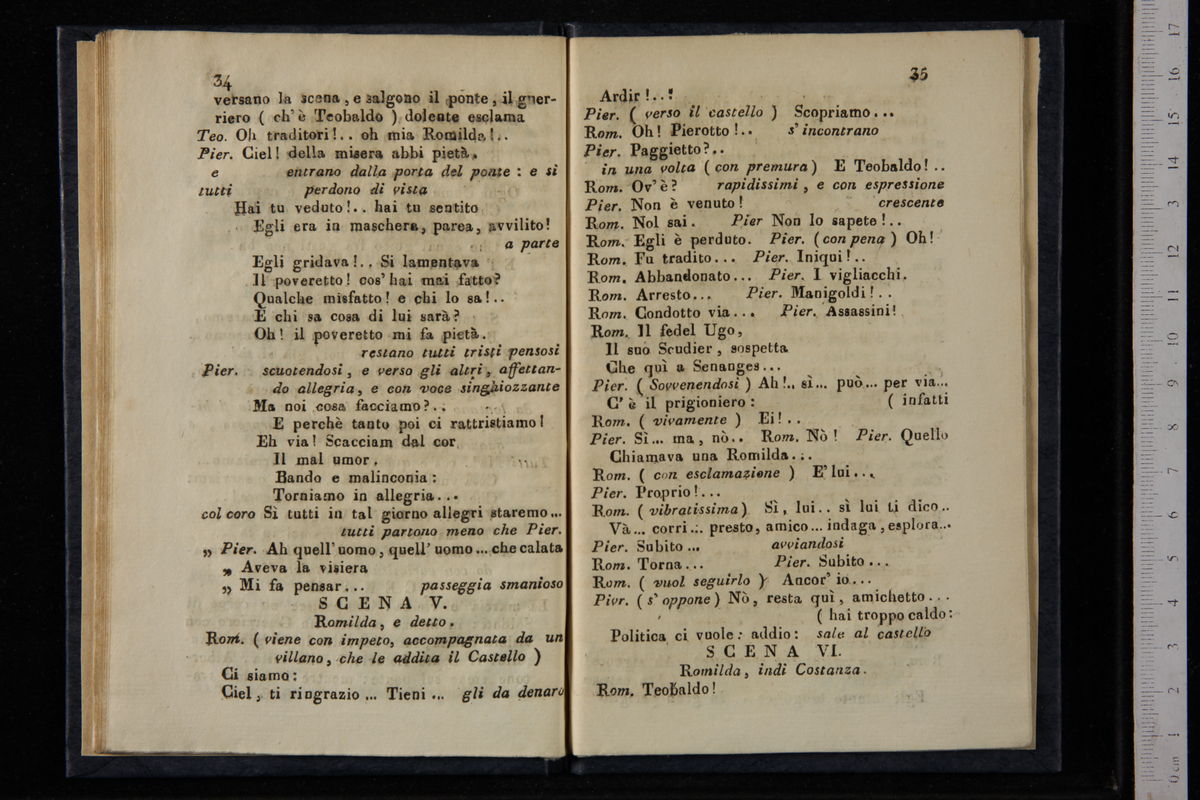 34
versano la scena, e salgono il ponte, il guer-
riero ( ch'è Teobaldo ) dolente esclama
Teo. Oh traditori!.. oh mia Romilda!..
Pier. Ciel! della misera abbi pietà.
e entrano dalla porta del ponte : e si
tutti perdono di vista
Hai tu veduto!.. hai tu sentito
Egli era in maschera, parea, avvilito!
a parte
Egli gridava!.. Si lamentava
Il poveretto! cos' hai mai fatto?
Qualche misfatto! e chi lo sa!..
E chi sa cosa di lui sarà?
Oh! il poveretto mi fa pietà.
restano tutti tristi pensosi
Pier. scuotendosi, e verso gli altri, affettan-
do allegria, e con voce singhiozzante
Ma noi cosa facciamo?..
E perchè tanto poi ci rattristiamo!
Eh via! Scacciam dal cor
Il mal umor.
Bando e malinconia :
Torniamo in allegria...
col coro Sì tutti in tal giorno allegri staremo...
tutti partono meno che Pier.
„ Pier. Ah quell' uomo, quell' uomo... che calata
„ Aveva la visiera
„ Mi fa pensar... passeggia smanioso
SCENA V.
Romilda, e detto.
Rom. ( viene con impeto, accompagnata da un
villano, che le addita il Castello )
Ci siamo:
Ciel, ti ringrazio ... Tieni ... gli da denaro
35
Ardir!..!
Pier. ( verso il castello ) Scopriamo...
Rom. Oh! Pierotto!.. s' incontrano
Pier. Paggietto?..
in una volta ( con premura ) E Teobaldo!..
Rom. Ov' è? rapidissimi, e con espressione
Pier. Non è venuto! crescente
Rom. Nol sai. Pier Non lo sapete!..
Rom. Egli è perduto. Pier. ( con pena ) Oh!
Rom. Fu tradito... Pier. Iniqui!..
Rom. Abbandonato... Pier. I vigliacchi.
Rom. Arresto... Pier. Manigoldi!..
Rom. Condotto via... Pier. Assassini!
Rom. Il fedel Ugo,
Il suo Scudier, sospetta
Che quì a Senanges...
Pier. ( Sovvenendosi ) Ah!.. sì... può... per via...
C' è il prigioniero : ( infatti
Rom. ( vivamente ) Ei!..
Pier. Sì... ma, nò.. Rom. Nò! Pier. Quello
Chiamava una Romilda...
Rom. ( con esclamazione ) E' lui...
Pier. Proprio!...
Rom. ( vibratissima ) Sì, lui.. sì lui ti dico..
Và... corri... presto, amico... indaga, esplora...
Pier. Subito ... avviandosi
Rom. Torna... Pier. Subito...
Rom. ( vuol seguirlo ) Ancor' io...
Pivr. ( s' oppone ) Nò, resta quì, amichetto...
( hai troppo caldo:
Politica ci vuole: addio: sale al castello
SCENA VI.
Romilda, indi Costanza.
Rom. Teobaldo!
17
16
15
14
13
12
11
10
9
8
7
6
5
4
3
2
1
0 cm